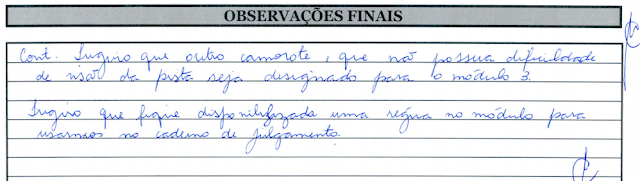 OBSERVAÇÕES FINAIS
Cont. Sugiro que outro camarote, que não possua dificuldade
de visão da pista seja designado para o módulo 3.
Sugiro que fique disponibilizada uma régua no módulo para
usarmos no caderno de julgamento.